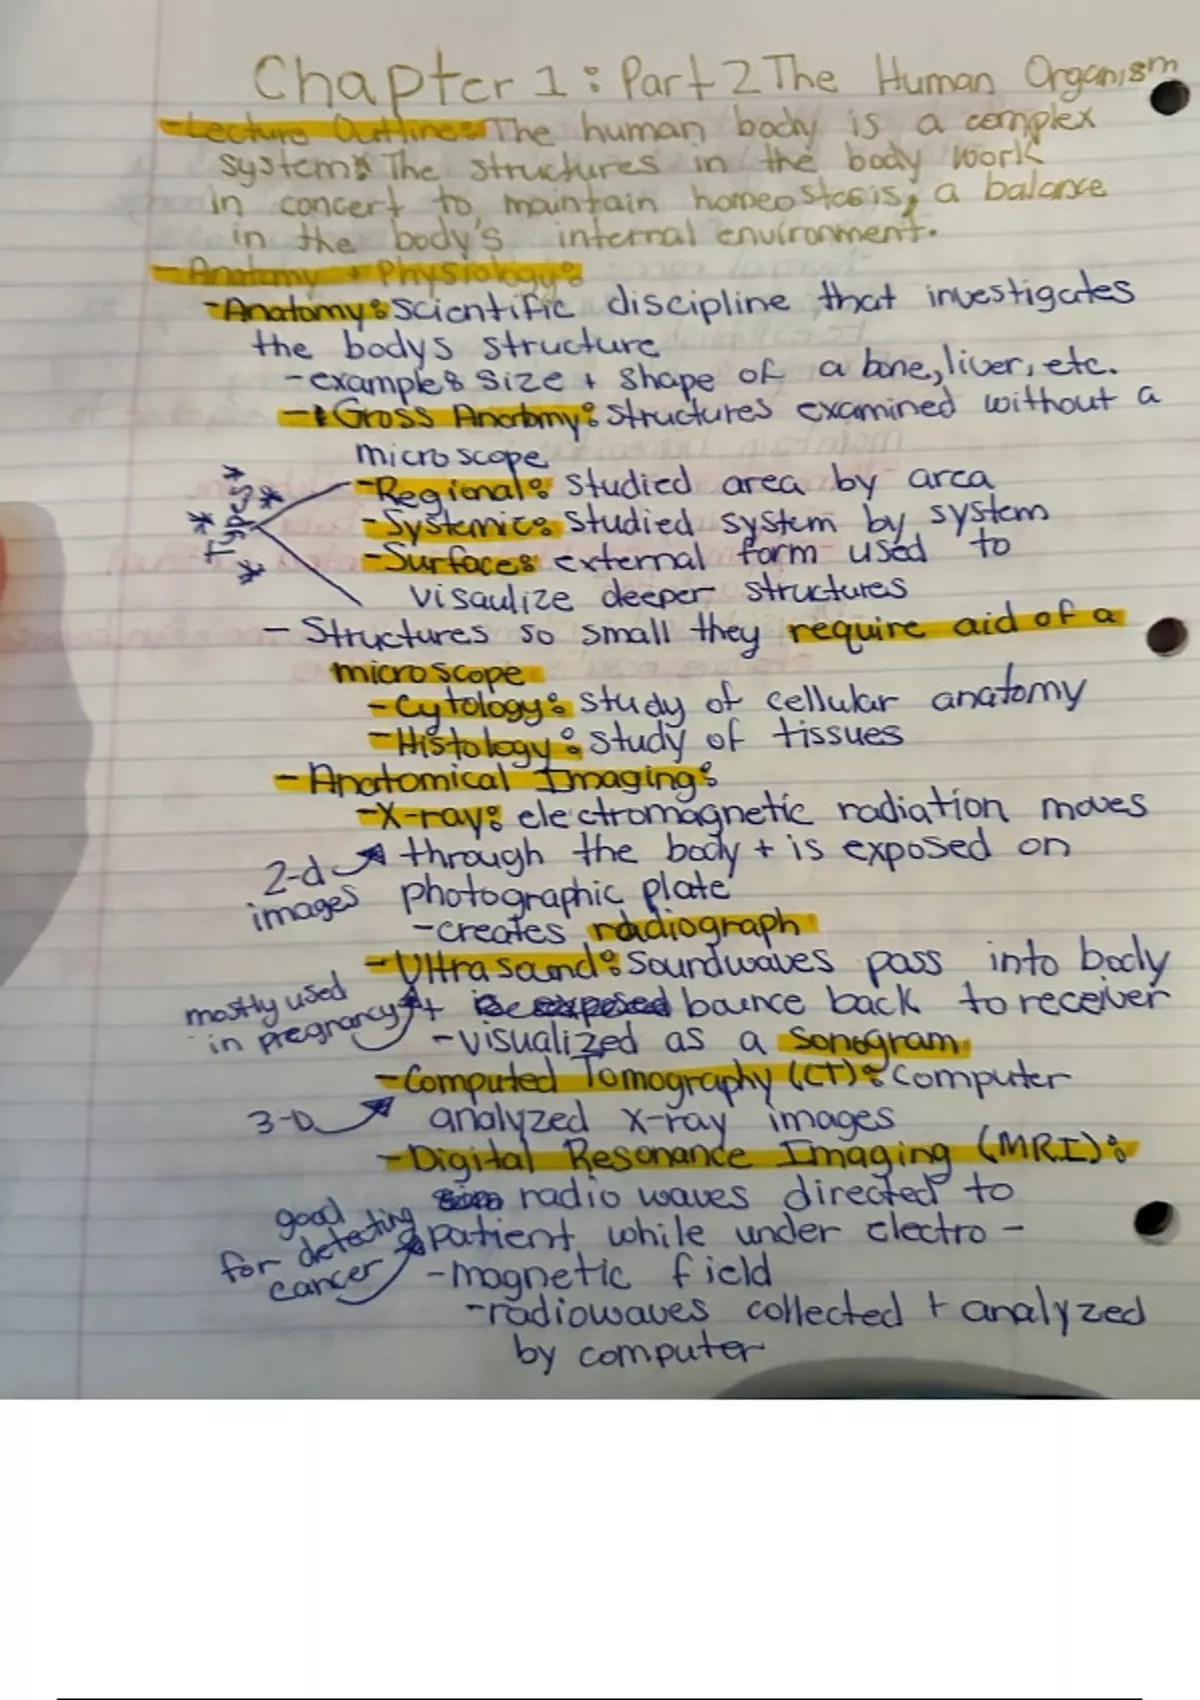 Chapter 1: Part 2 The Human Organism
-Lecture Outline: The human body is a complex
system: The structures in the body work
in concert to maintain homeostasis; a balance
in the body's internal environment.
- Anatomy + Physiology:
-Anatomy: scientific discipline that investigates
the bodys structure
-example: size + shape of a bone, liver, etc.
- Gross Anatomy: structures examined without a
microscope
-Regional: studied area by area
*Types*
-Systemic: studied system by system
-Surface: external form used to
visaulize deeper structures
- Structures so small they require aid of a
microscope
-Cytology: study of cellular anatomy
-Histology: study of tissues
-Anatomical Imaging:
-X-ray: electromagnetic radiation moves
through the body + is exposed on
2-d
images
photographic plate
-creates radiograph
-Ultrasound: Soundwaves pass into body
mostly used
in pregnancy
+ be exposed bounce back to receiver
-visualized as a sonogram
-Computed Tomography (CT): computer
3-D
analyzed x-ray images
-Digital Resonance Imaging (MRI):
radio waves directed to
good
for detecting
cancer
patient while under electro-
-magnetic field
-radiowaves collected + analyzed
by computer